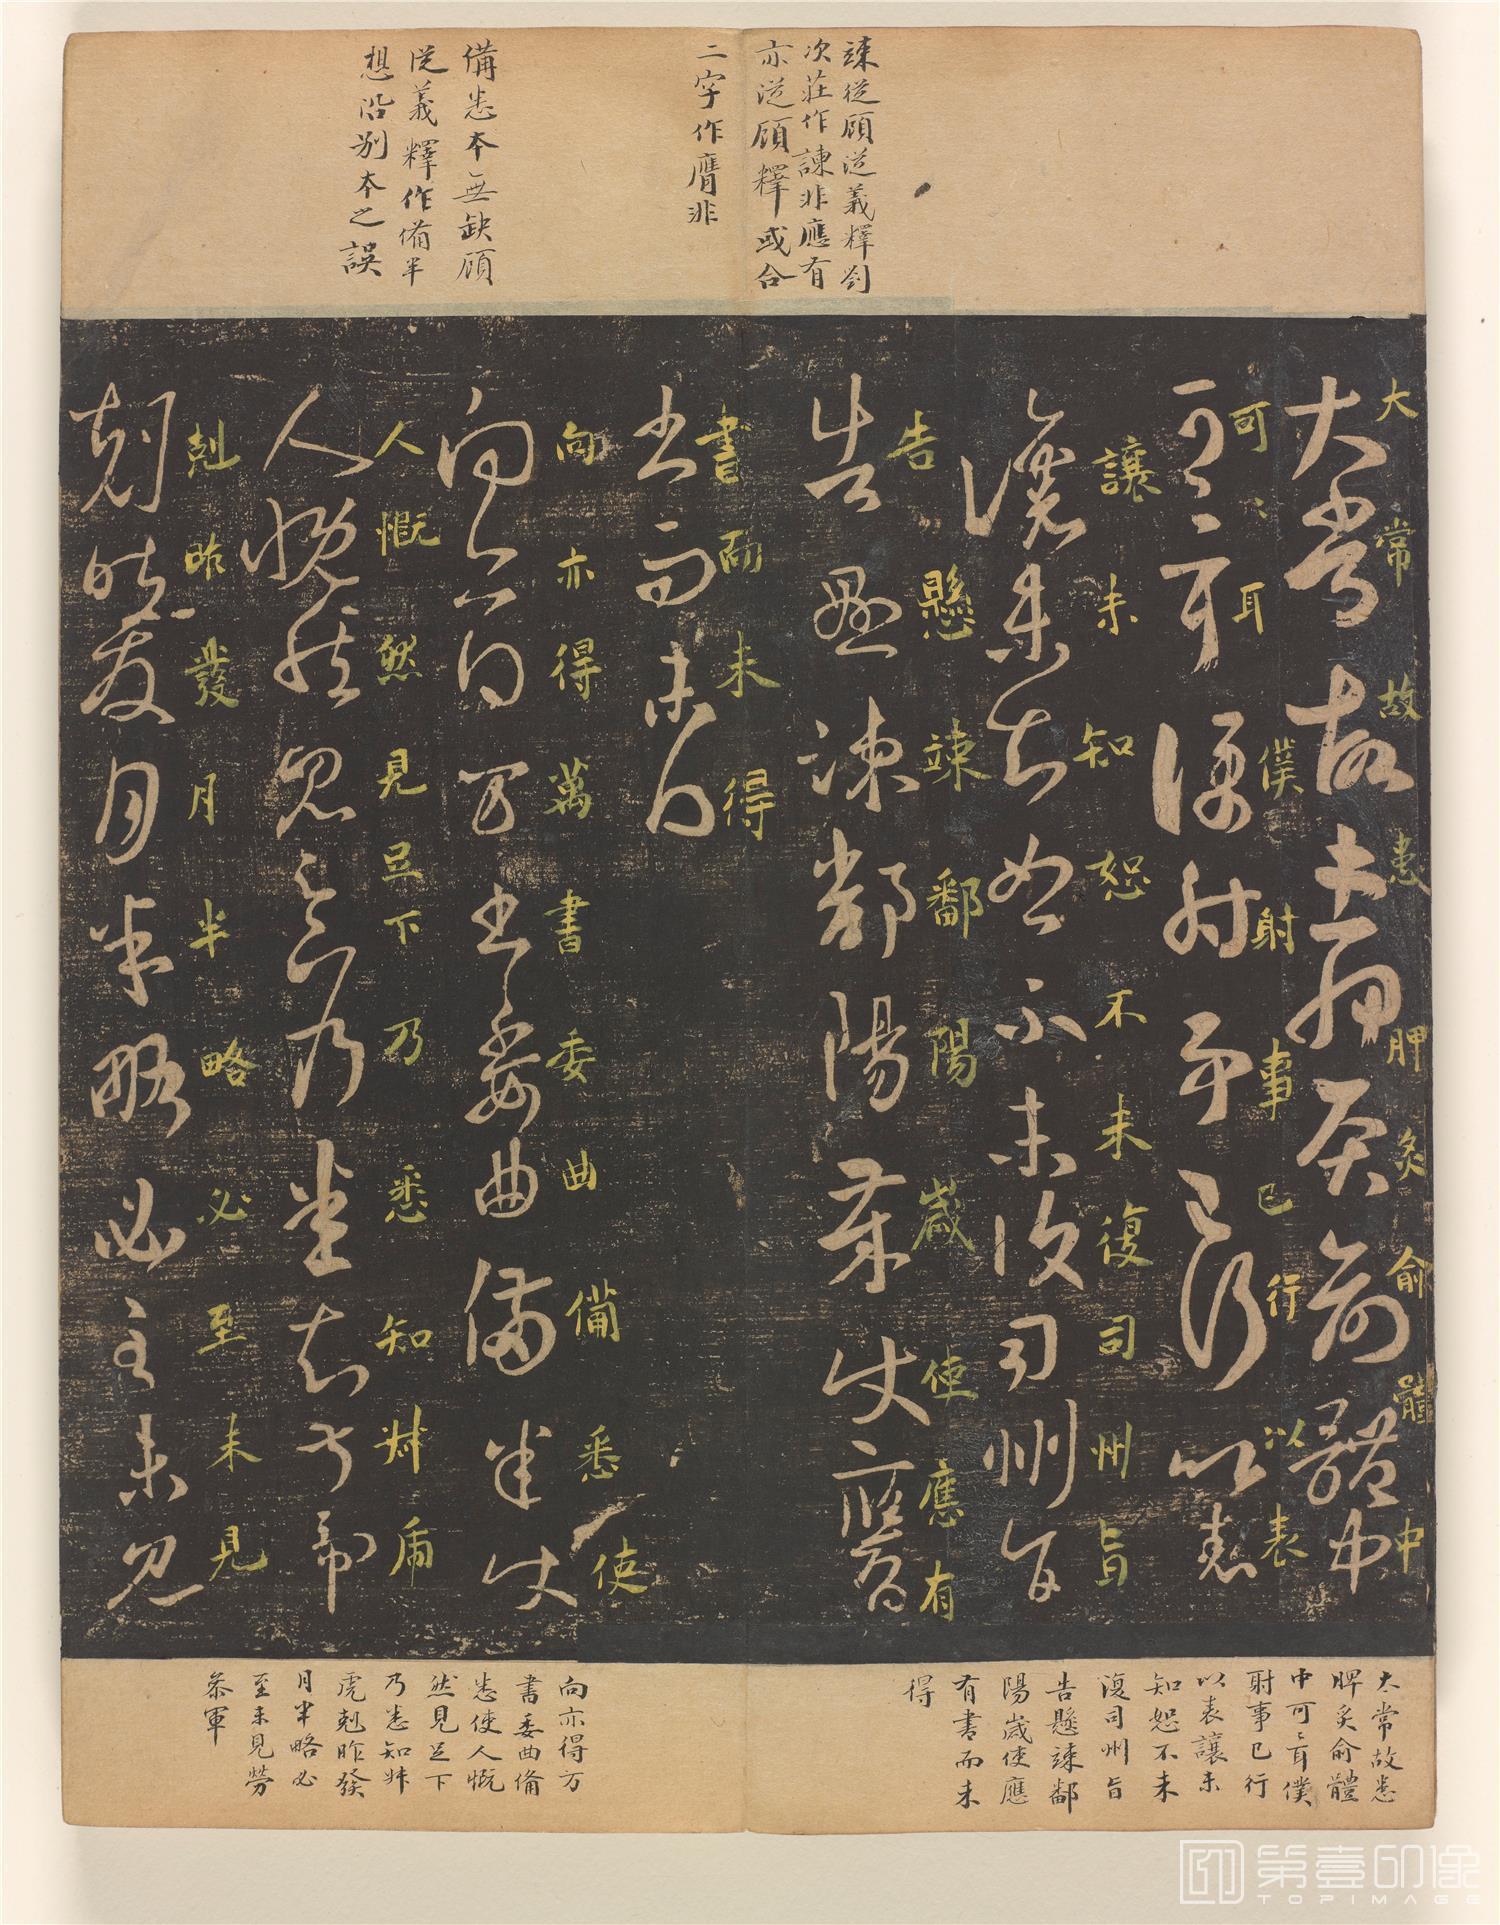 竦從顧從義釋劉
次莊作諫非應有
亦從顧釋或合
二字作膺非
備悉本無缺顧
從義釋作備半
想沿別本之誤
大常故患胛炙俞體中
可〻耳僕射事已行以表
讓未知恕不未復司州旨
告懸竦鄱陽歲使應有
書而未得
向亦得萬書委曲備悉使
人慨然見足下乃悉知叔虎
剋昨發月半略必至未見
大常故患
脾炙俞體
中可〻耳僕
射事已行
以表讓未
知恕不未
復司州旨
告懸竦鄱
陽歲使應
有書而未
得
向亦得万
書委曲备
悉使人慨
然見足下
乃悉知叔
虎剋昨發
月半略必
至未見勞
參軍
第壹印像
TOPIMAGE